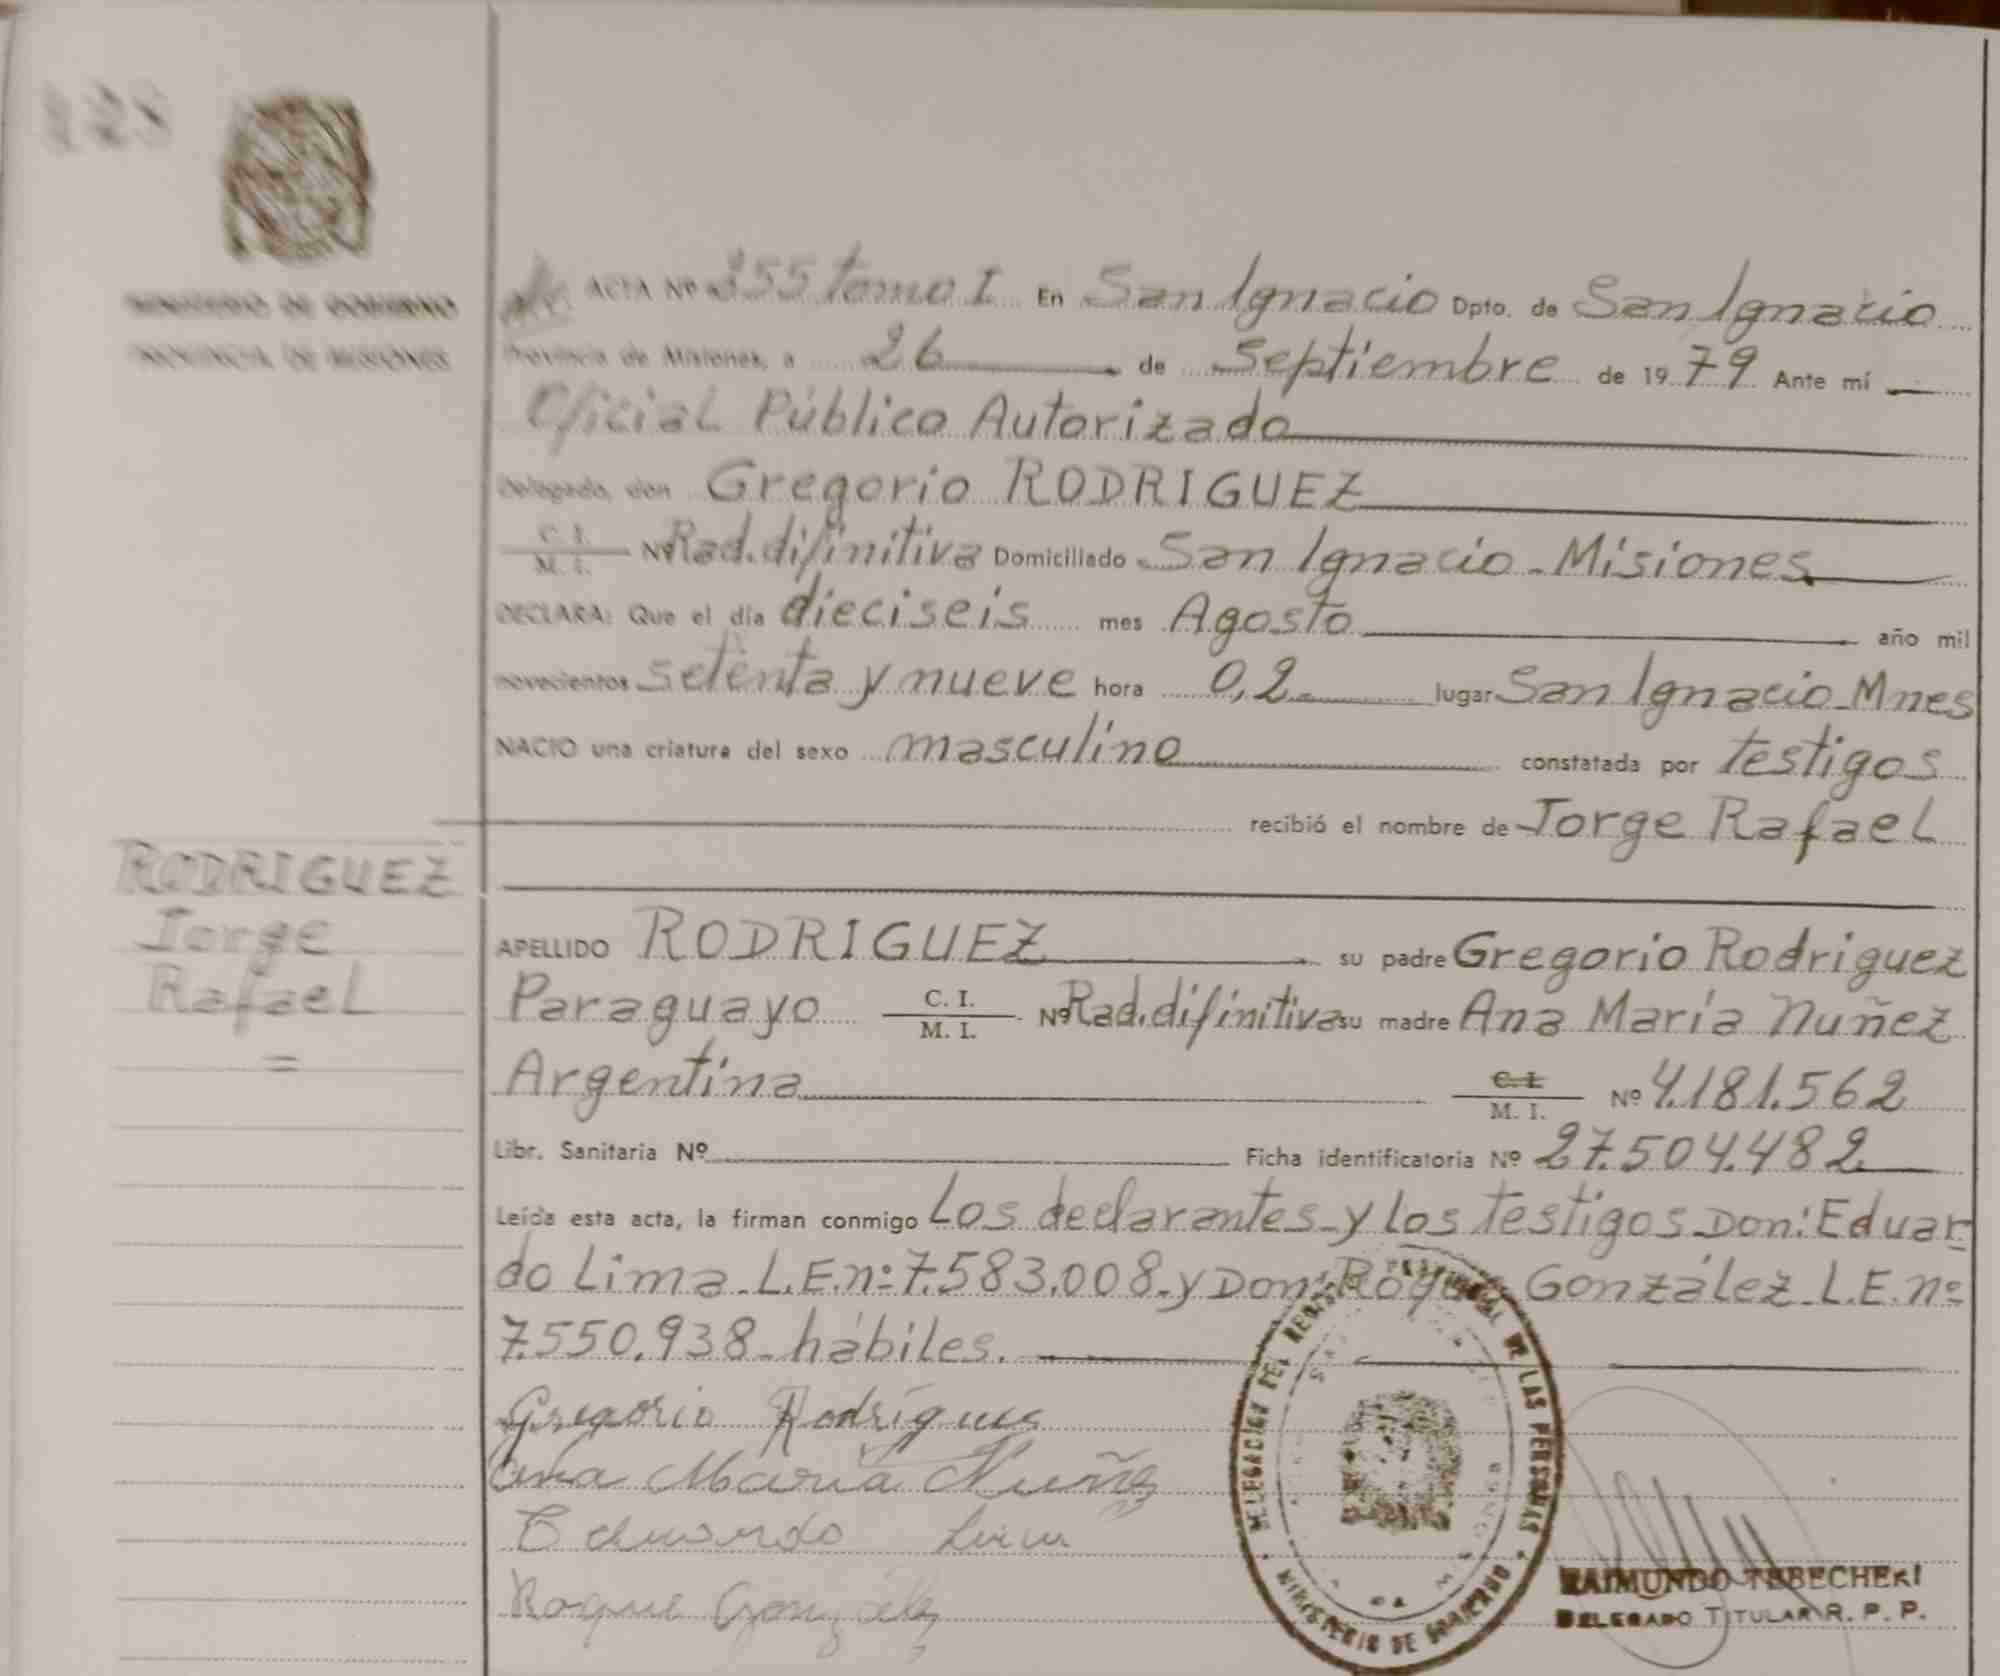 MINISTERIO DE GOBIERNO
PROVINCIA DE MISIONES
ACTA Nº 355 tomo I En San Ignacio Dpto. de San Ignacio
Provincia de Misiones, a 26 de Septiembre de 1979 Ante mí
Oficial Público Autorizado
Delegado, don Gregorio RODRIGUEZ
C. I. / M. I. Nº Rad. difinitiva Domiciliado San Ignacio - Misiones
DECLARA: Que el día dieciseis mes Agosto año mil
novecientos setenta y nueve hora 0,2 lugar San Ignacio - Mnes
NACIO una criatura del sexo masculino constatada por testigos
recibió el nombre de Jorge Rafael
RODRIGUEZ
Jorge
Rafael
=
APELLIDO RODRIGUEZ su padre Gregorio Rodriguez
Paraguayo C. I. / M. I. Nº Rad. difinitiva su madre Ana María Nuñez
Argentina C. I. / M. I. Nº 4.181.562
Libr. Sanitaria Nº Ficha identificatoria Nº 27.504.482
Leída esta acta, la firman conmigo Los declarantes - y los testigos - Don: Eduar-
do Lima - L.E. nº 7.583.008 - y Don: Roque González - L.E. nº
7.550.938 - hábiles.
Gregorio Rodrígues
Ana María Nuñez
Eduardo Lima
Roque González
DELEGACION DEL REGISTRO PROVINCIAL DE LAS PERSONAS
MINISTERIO DE GOBIERNO
RAIMUNDO TEBECHERI
DELEGADO TITULAR R. P. P.